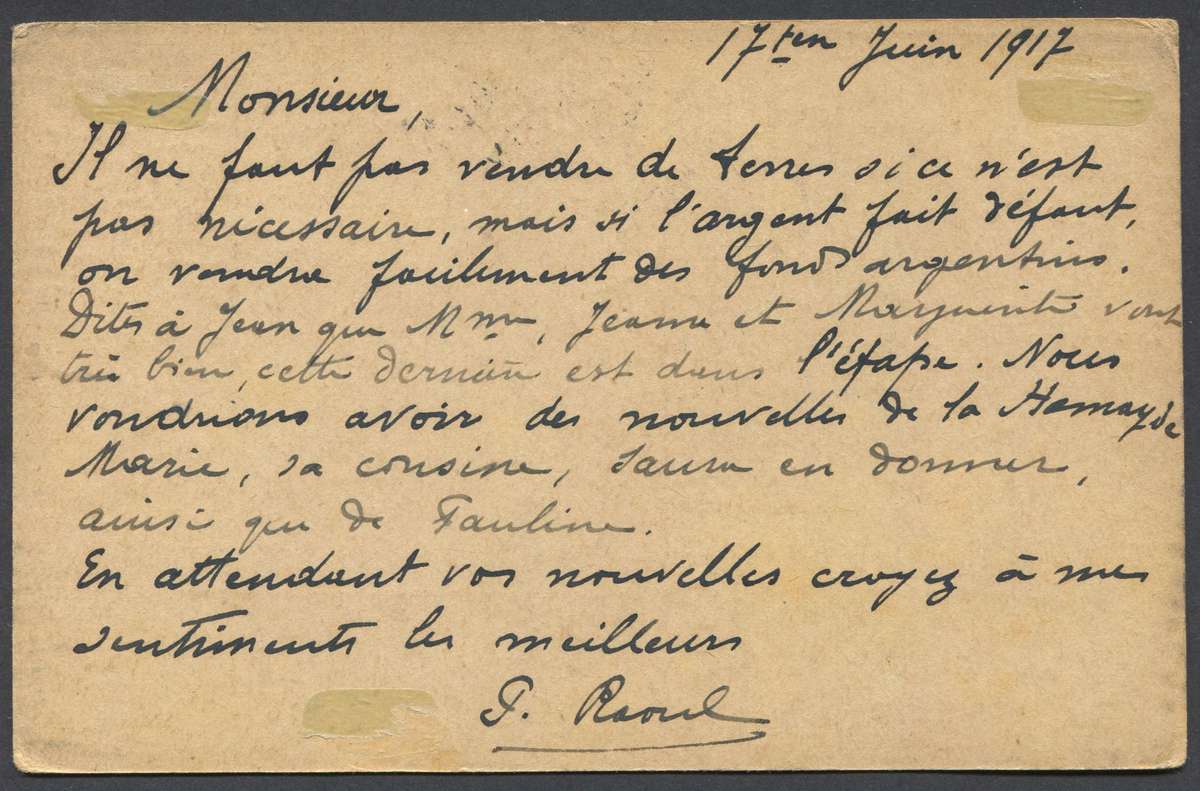 17ten Juin 1917
Monsieur,
Il ne faut pas vendre de terres si ce n'est
pas nécessaire, mais si l'argent fait défaut,
on vendra facilement des fonds argentins.
Dites à Jean que Mme, Jeanne et Marguerite vont
très bien, cette dernière est dans l'étape. Nous
voudrions avoir des nouvelles de la Hamayde
Marie, sa cousine, saura en donner,
ainsi que de Pauline.
En attendant vos nouvelles croyez à mes
sentiments les meilleurs
F. Raoul